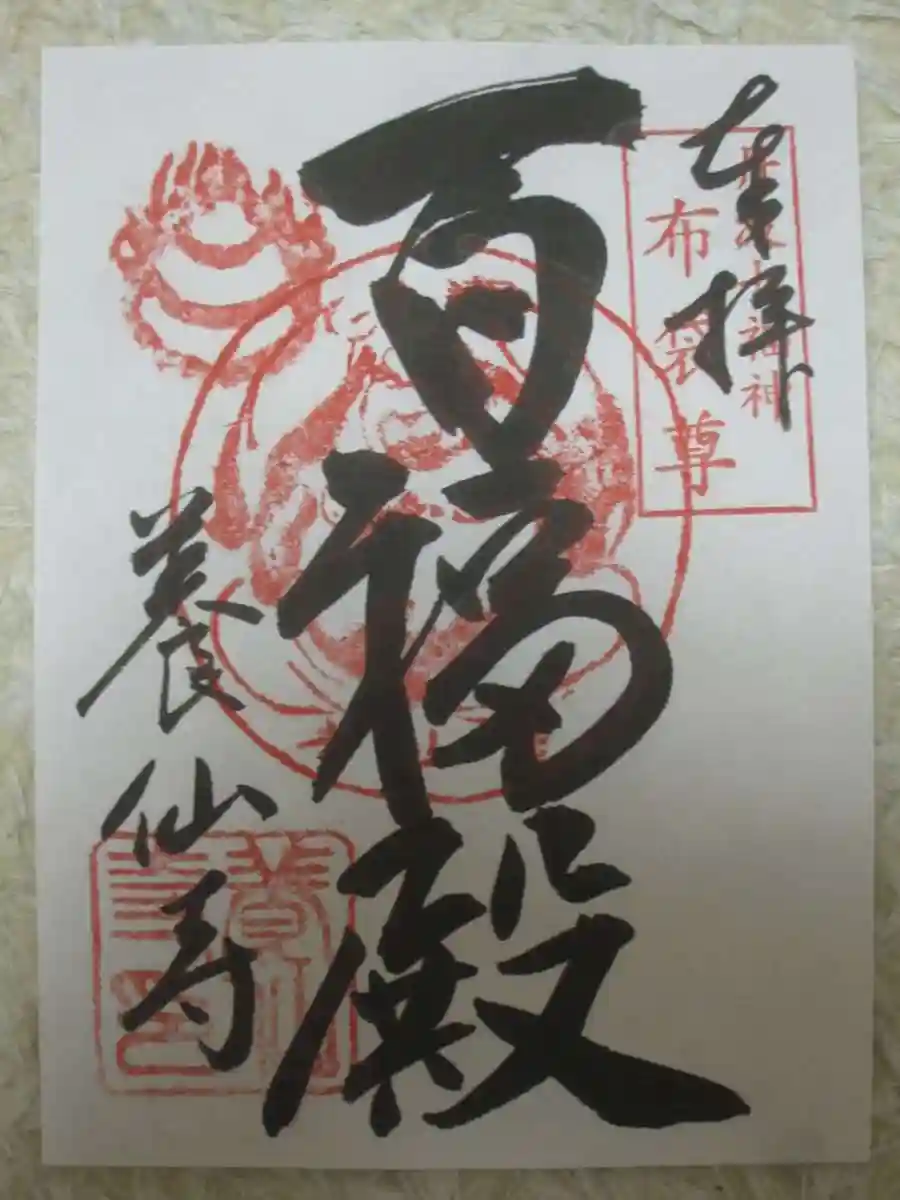 奉拝
七福神
布袋尊
百福殿
養仙寺